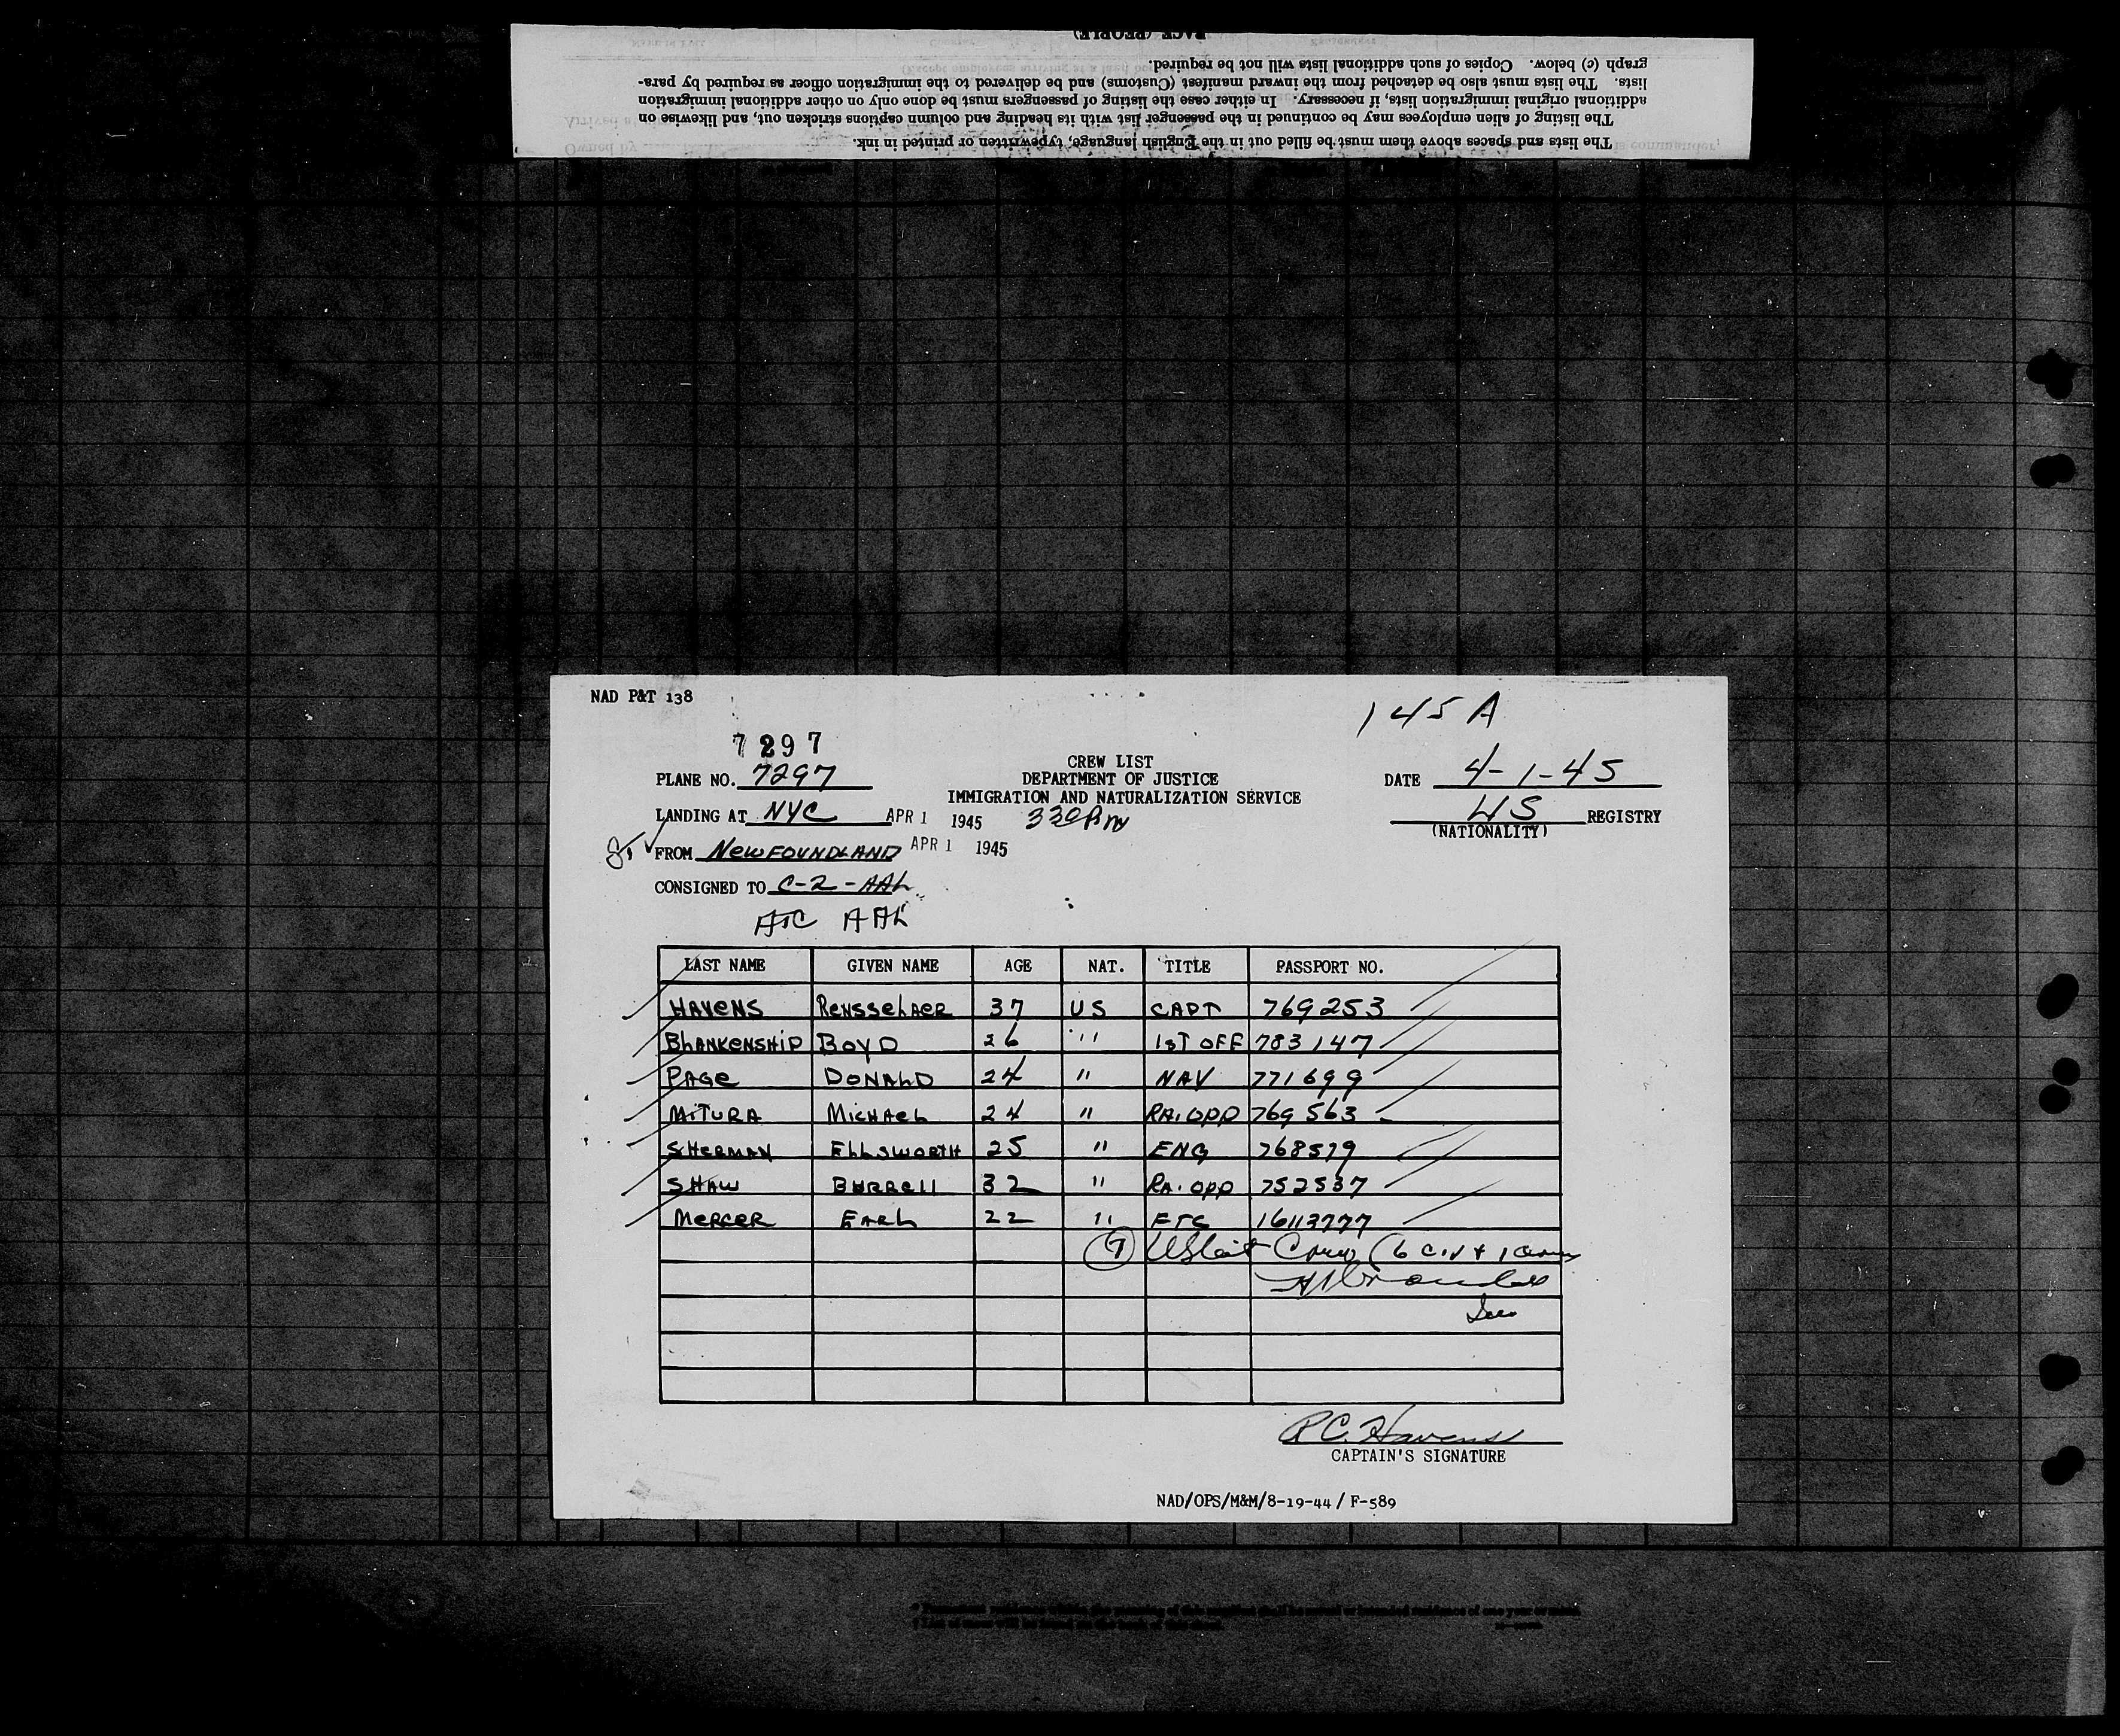 PAGE (PEOPLE)
graph (c) below. Copies of such additional lists will not be required.
lists. The lists must also be detached from the inward manifest (Customs) and be delivered to the immigration officer as required by para-
additional original immigration lists, if necessary. In either case the listing of passengers must be done only on other additional immigration
The listing of alien employees may be continued in the passenger list with its heading and column captions stricken out, and likewise on
The lists and spaces above them must be filled out in the English language, typewritten or printed in ink.
NAD P&T 138
145A
7297
CREW LIST
PLANE NO. 7297 DEPARTMENT OF JUSTICE DATE 4-1-45
IMMIGRATION AND NATURALIZATION SERVICE
LANDING AT NYC APR 1 1945 330 PM US REGISTRY
(NATIONALITY)
FROM NEWFOUNDLAND APR 1 1945
CONSIGNED TO C-2-AAL
ATC AAL
LAST NAME GIVEN NAME AGE NAT. TITLE PASSPORT NO.
HAVENS RENSSELAER 37 US CAPT 769253
BLANKENSHIP BOYD 26 " 1ST OFF 783147
PAGE DONALD 24 " NAV 771699
MITURA MICHAEL 24 " RA. OPP 769563
SHERMAN ELLSWORTH 25 " ENG 768579
SHAW BURRELL 32 " RA. OPP 752537
MERCER EARL 22 " FTC 16113777
7 US Cit Crew (6 Civ + 1 army
R.C. Havens
CAPTAIN'S SIGNATURE
NAD/OPS/M&M/8-19-44/ F-589